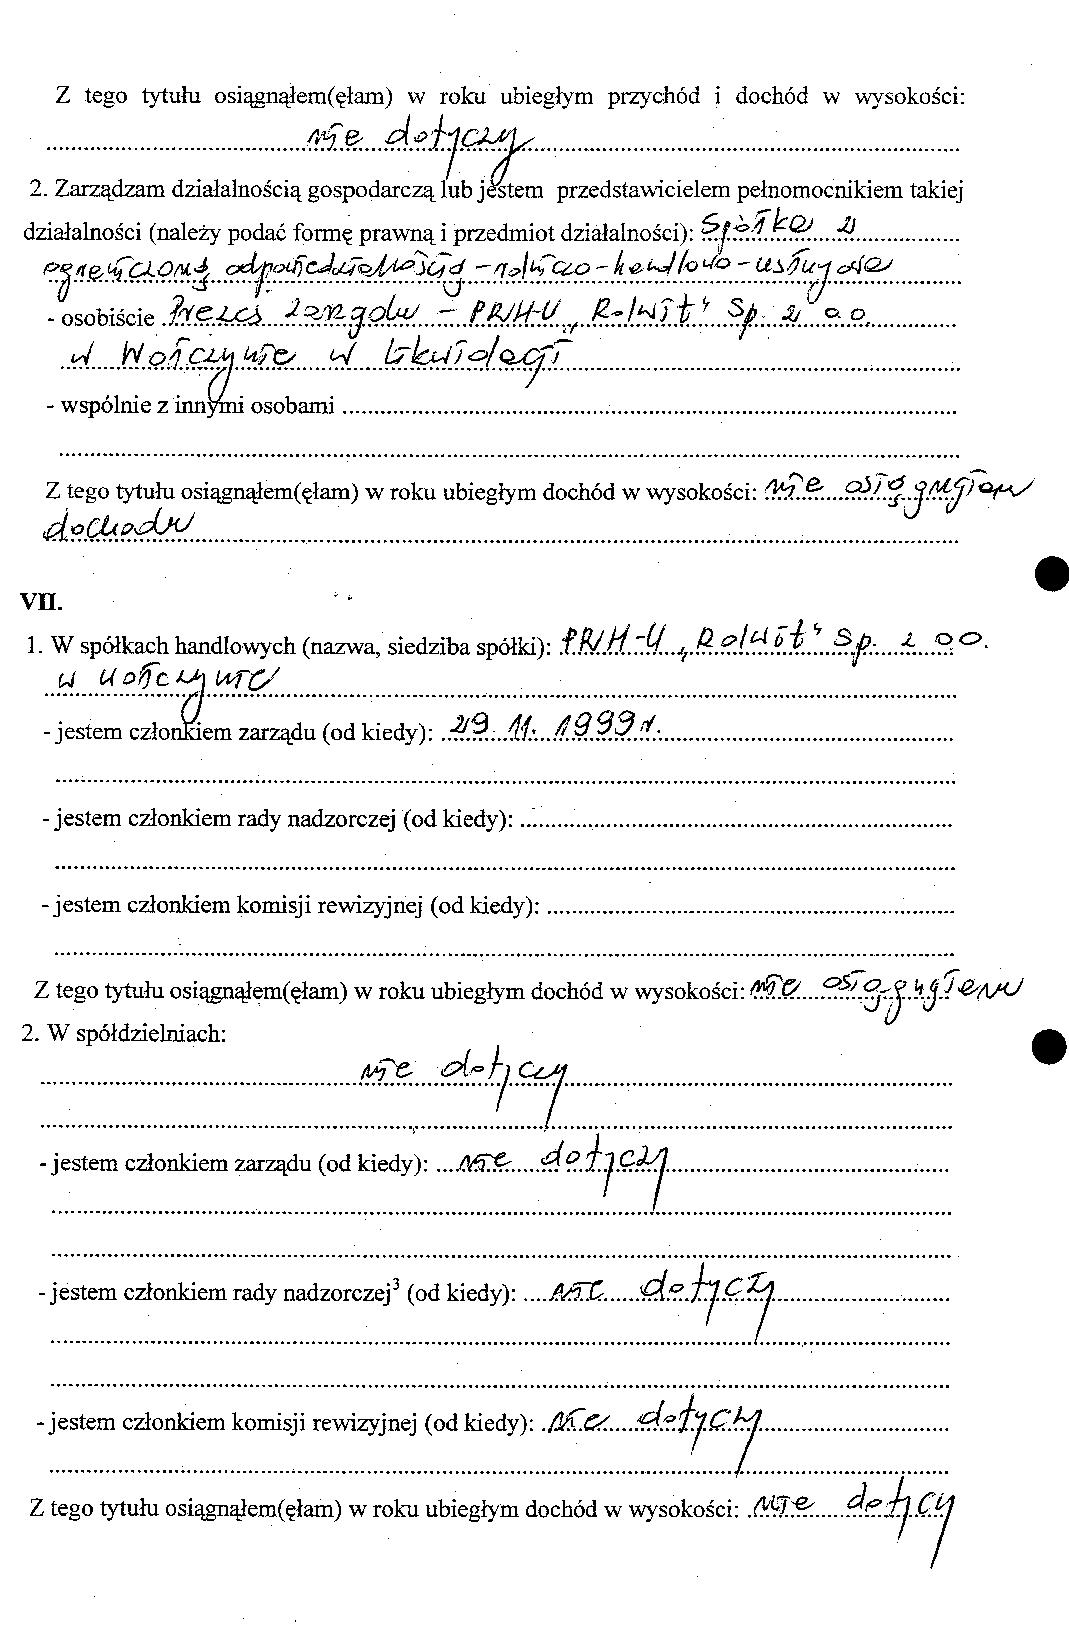 Z tego tytułu osiągnąłem(ęłam) w roku ubiegłym przychód i dochód w wysokości:
nie dotyczy
2. Zarządzam działalnością gospodarczą lub jestem przedstawicielem pełnomocnikiem takiej
działalności (należy podać formę prawną i przedmiot działalności): Spółka z
ograniczoną odpowiedzialnością - rolniczo - handlowo - usługowa
- osobiście Prezes Zarządu - PRH-U „Rolwit" Sp. z o.o.
w Wończynie w likwidacji
- wspólnie z innymi osobami
Z tego tytułu osiągnąłem(ęłam) w roku ubiegłym dochód w wysokości: nie osiągnąłem
dochodu
VII.
1. W spółkach handlowych (nazwa, siedziba spółki): PRH-U „Rolwit" Sp. z o.o.
w
- jestem członkiem zarządu (od kiedy): 29.11.1999r.
- jestem członkiem rady nadzorczej (od kiedy):
- jestem członkiem komisji rewizyjnej (od kiedy):
Z tego tytułu osiągnąłem(ęłam) w roku ubiegłym dochód w wysokości: nie osiągnąłem
2. W spółdzielniach:
nie dotyczy
- jestem członkiem zarządu (od kiedy): nie dotyczy
- jestem członkiem rady nadzorczej³ (od kiedy): nie dotyczy
- jestem członkiem komisji rewizyjnej (od kiedy): nie dotyczy
Z tego tytułu osiągnąłem(ęłam) w roku ubiegłym dochód w wysokości: nie dotyczy